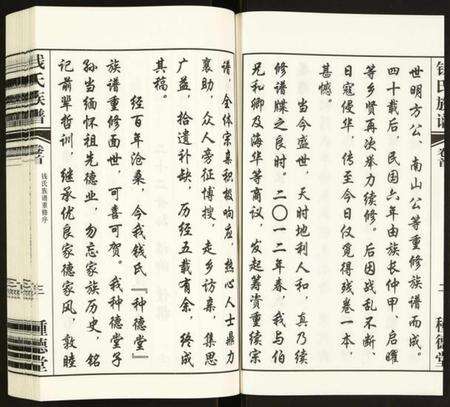 世明方公、南山公等重修族谱而成。
四十载后，民国六年由族长仲甲、启曜
等乡贤再次举力续修。后因战乱不断、
日寇侵华，传至今日仅觅得残卷一本，
甚憾。
当今盛世，天时地利人和，真乃续
修谱牒之良时。二〇一二年春，我与伯
兄和卿及海华等商议，发起筹资重续宗
二
种德堂
钱氏族谱
卷首
钱氏族谱重修序
三
种德堂
谱，全体宗亲积极响应，热心人士鼎力
襄助，众人旁征博引，走乡访亲，集思
广益，拾遗补缺，历经五载有余，终成
其稿。
经百年沧桑，今我钱氏『种德堂』
族谱重修面世，可喜可贺。我种德堂子
孙当缅怀祖先德业，勿忘家族历史，铭
记前辈哲训，继承优良家德家风，敦睦